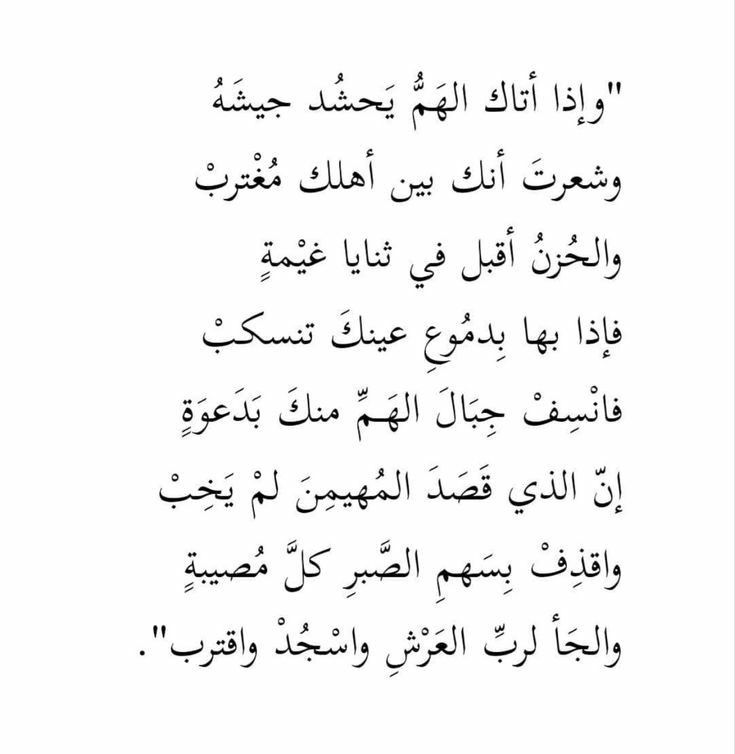 "وإذا أتاك الهَمُّ يَحشُد جيشَهُ
وشعرتَ أنك بين أهلك مُغْتربْ
والحُزنُ أقبل في ثنايا غيْمةٍ
فإذا بها بِدمُوعِ عينكَ تنسكبْ
فانْسِفْ جِبَالَ الهَـمِّ منكَ بَدَعوَةٍ
إنّ الذي قَصَدَ المُهيمِنَ لمْ يَخِبْ
واقذِفْ بِسَهمِ الصَّبرِ كلَّ مُصيبةٍ
والجَأ لربِّ العَرْشِ واسْجُدْ واقترب".